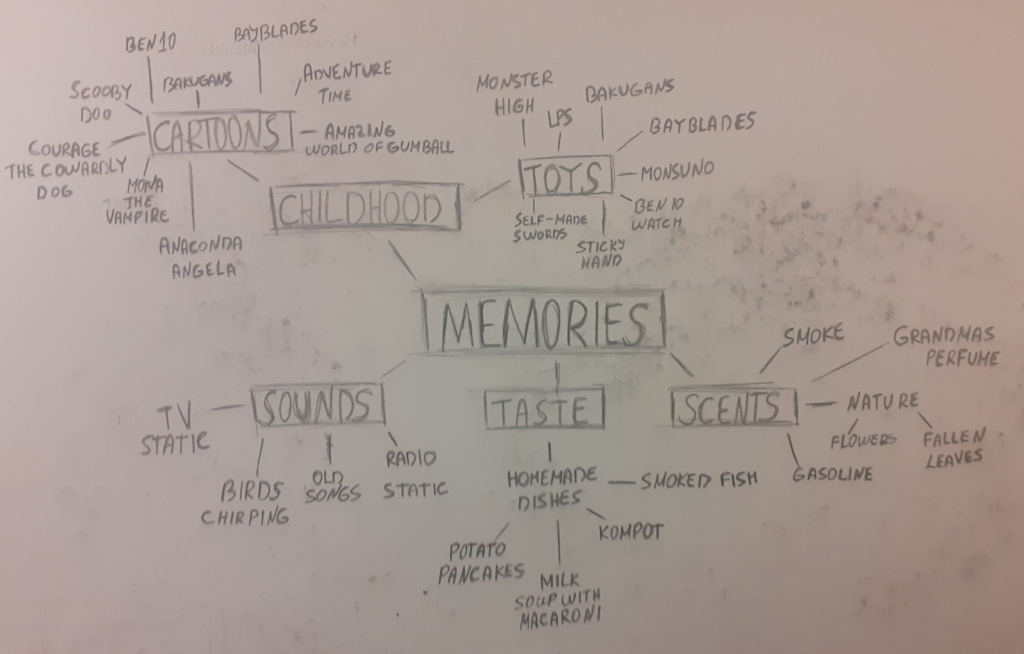 BEN10
BAYBLADES
SCOOBY
DOO
BAKUGANS
ADVENTURE
TIME
CARTOONS
COURAGE
THE COWARDLY
DOG
AMAZING
WORLD OF GUMBALL
MONA
THE
VAMPIRE
ANACONDA
ANGELA
CHILDHOOD
MONSTER
HIGH
LPS
BAKUGANS
BAYBLADES
TOYS
MONSUNO
BEN 10
WATCH
SELF-MADE
SWORDS
STICKY
HAND
MEMORIES
SOUNDS
TV
STATIC
BIRDS
CHIRPING
OLD
SONGS
RADIO
STATIC
TASTE
HOMEMADE
DISHES
SMOKED FISH
KOMPOT
POTATO
PANCAKES
MILK
SOUP WITH
MACARONI
SCENTS
SMOKE
GRANDMAS
PERFUME
NATURE
FLOWERS
FALLEN
LEAVES
GASOLINE